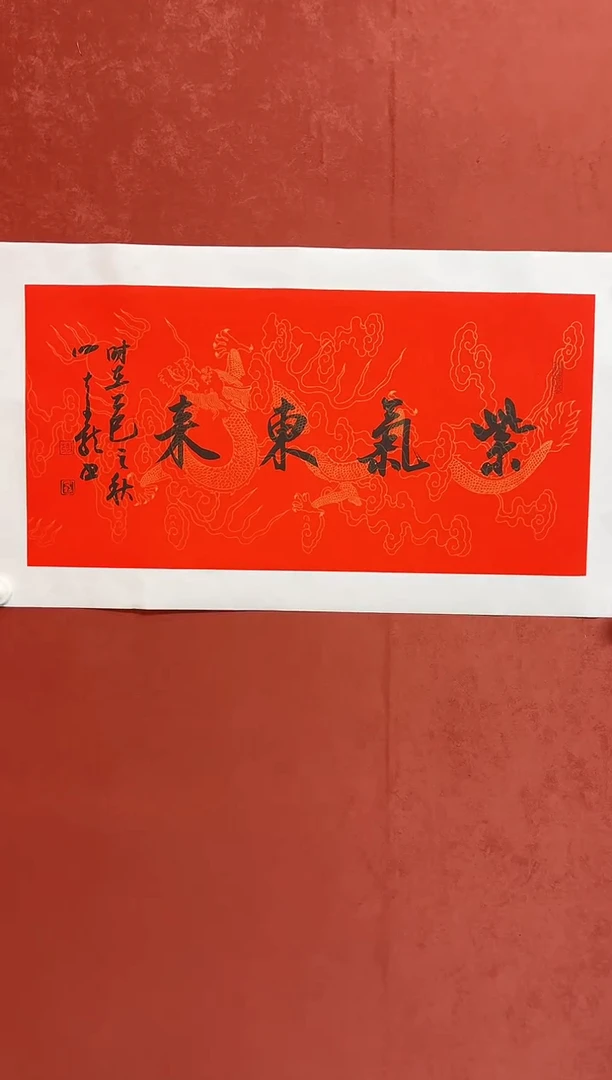 紫氣東来
时在乙巳之秋